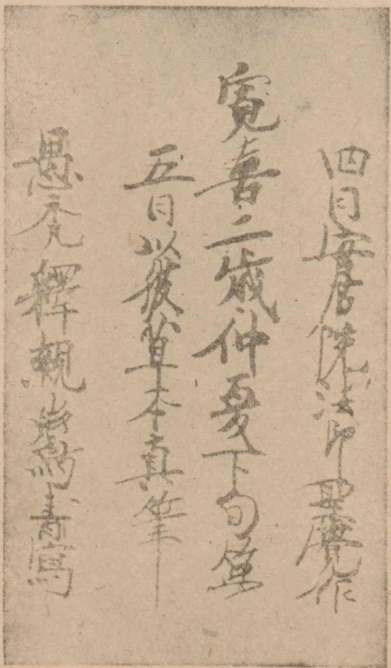 四日安居院法印聖覺作
寛喜二歳仲夏下旬第
五日以彼草本真筆
愚禿釋親鸞書寫